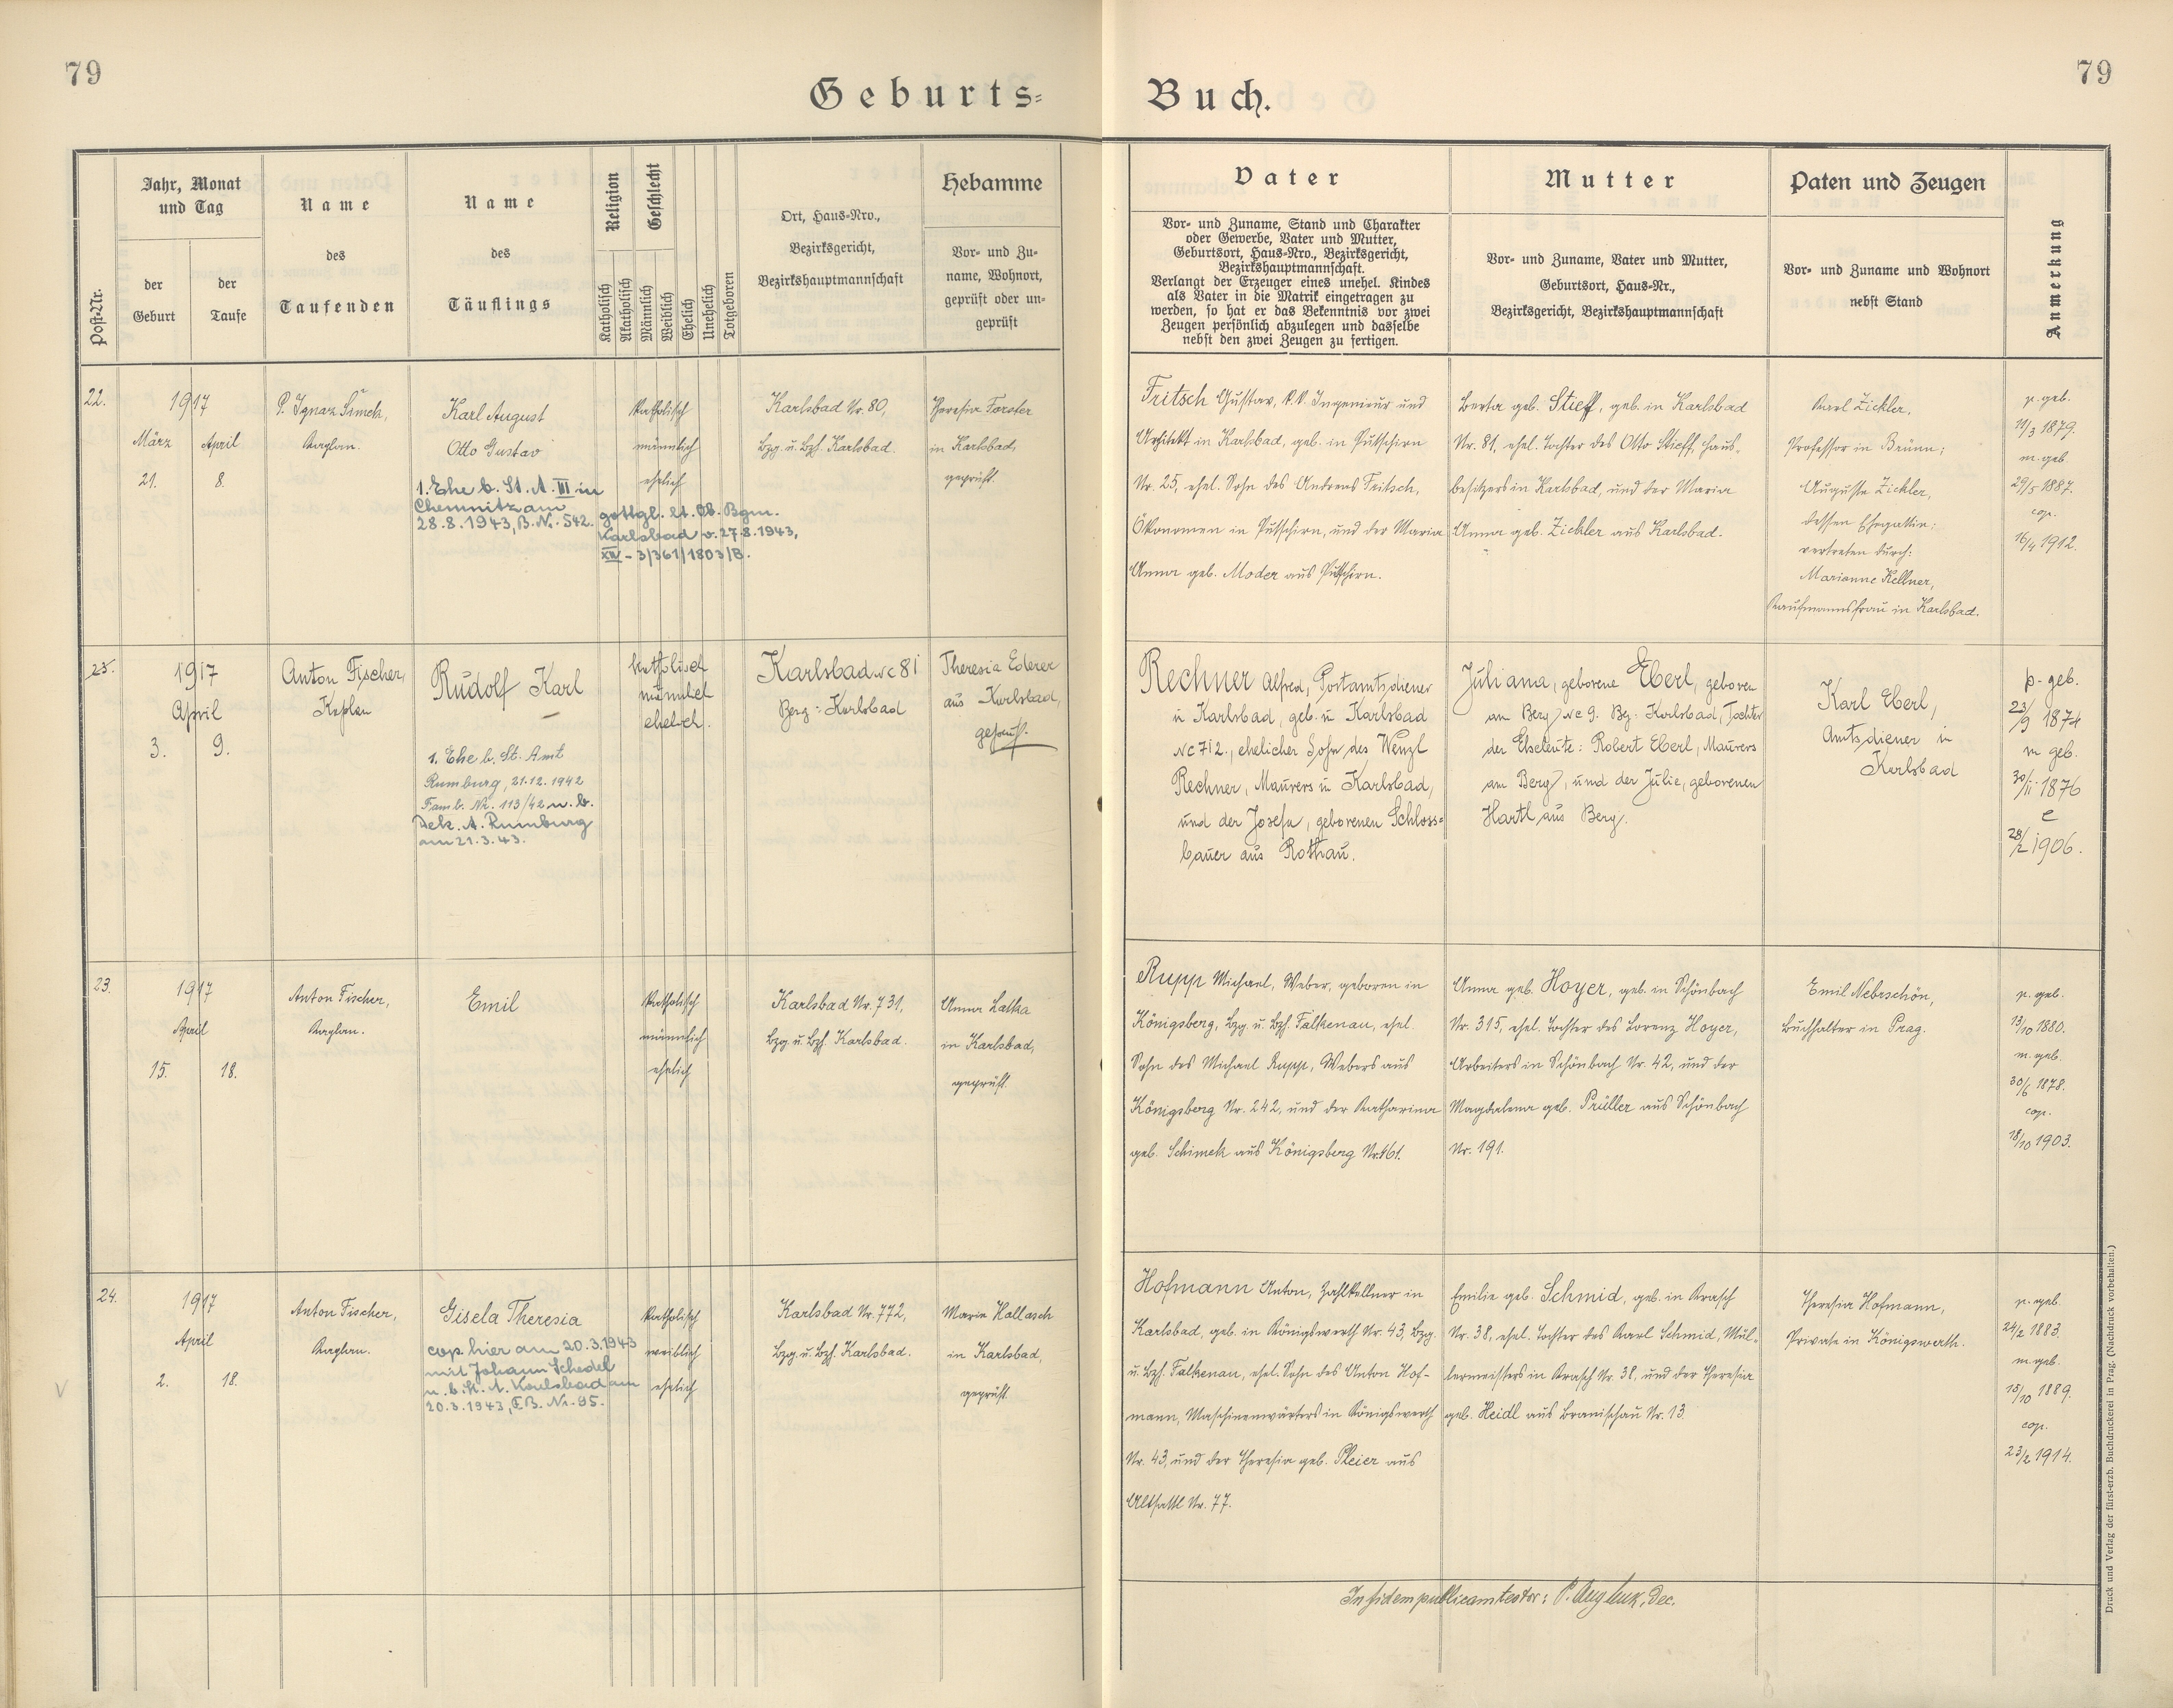 79
79
Geburts=
Buch.
Post-Nr.
Jahr, Monat
und Tag
der
Geburt
der
Taufe
Name
des
Taufenden
Name
des
Täuflings
Religion
Katholisch
Akatholisch
Geschlecht
Männlich
Weiblich
Ehelich
Unehelich
Totgeboren
Ort, Haus=Nro.,
Bezirksgericht,
Bezirkshauptmannschaft
Hebamme
Vor= und Zu=
name, Wohnort,
geprüft oder un=
geprüft
Vater
Vor= und Zuname, Stand und Charakter
oder Gewerbe, Vater und Mutter,
Geburtsort, Haus=Nro., Bezirksgericht,
Bezirkshauptmannschaft.
Verlangt der Erzeuger eines unehel. Kindes
als Vater in die Matrik eingetragen zu
werden, so hat er das Bekenntnis vor zwei
Zeugen persönlich abzulegen und dasselbe
nebst den zwei Zeugen zu fertigen.
Mutter
Vor= und Zuname, Vater und Mutter,
Geburtsort, Haus=Nr.,
Bezirksgericht, Bezirkshauptmannschaft
Paten und Zeugen
Vor= und Zuname und Wohnort
nebst Stand
Anmerkung
22.
1917
März April
21. 8.
P. Ignaz Šimek,
Kaplan.
Karl August
Otto Gustav
1. Ehe b. St. A. III in
Chemnitz am
28.8.1943, B.Nr. 542.
gottgl. lt. Ob. Bgm.
Karlsbad v. 27.8.1943,
XIV - 3/361/1803/B.
katholisch
männlich
ehelich
Karlsbad Nr. 80,
Bzg. u. Bzh. Karlsbad.
Theresia Forster
in Karlsbad,
geprüft.
Fritsch Gustav, k.k. Ingenieur und
Architekt in Karlsbad, geb. in Putschirn
Nr. 25, ehel. Sohn des Andreas Fritsch,
Ökonomen in Putschirn, und der Maria
Anna geb. Moder aus Putschirn.
Berta geb. Stieff, geb. in Karlsbad
Nr. 81, ehel. Tochter des Otto Stieff, Haus-
besitzers in Karlsbad, und der Maria
Anna geb. Zickler aus Karlsbad.
Karl Zickler,
Professor in Brünn;
Auguste Zickler,
dessen Ehegattin;
vertreten durch:
Marianne Kellner,
Kaufmannsfrau in Karlsbad.
p. geb.
11/3 1879.
m. geb.
29/5 1887.
cop.
16/4 1912.
23.
1917
April
3. 9.
Anton Fischer,
Kaplan
Rudolf Karl
1. Ehe b. St. Amt
Rumburg, 21.12.1942
Famb. Nr. 113/42 u. b.
Dek. A. Rumburg
am 21.3.43.
katholisch
männlich
ehelich.
Karlsbad Nc 81
Bezg: Karlsbad
Theresia Ederer
aus Karlsbad,
geprüf.
Rechner Alfred, Postamtsdiener
in Karlsbad, geb. in Karlsbad
Nc 712., ehelicher Sohn des Wenzl
Rechner, Maurers in Karlsbad,
und der Josefa, geborenen Schloss=
bauer aus Rothau.
Juliana, geborene Eberl, geboren
am Berg Nc 9. Bez: Karlsbad, Tochter
der Eheleute: Robert Eberl, Maurers
am Berg, und der Julie, geborenen
Hartl aus Berg.
Karl Eberl,
Amtsdiener in
Karlsbad
p. geb.
23/9 1874
m geb.
30/11 1876
c
28/2 1906.
23.
1917
April
15. 18.
Anton Fischer,
Kaplan.
Emil
katholisch
männlich
ehelich
Karlsbad Nr. 731,
Bzg. u. Bzh. Karlsbad.
Anna Latka
in Karlsbad,
geprüft.
Rupp Michael, Weber, geboren in
Königsberg, Bzg. u. Bzh. Falkenau, ehel.
Sohn des Michael Rupp, Webers aus
Königsberg Nr. 242, und der Katharina
geb. Schimek aus Königsberg Nr. 161.
Anna geb. Hoyer, geb. in Schönbach
Nr. 315, ehel. Tochter des Lorenz Hoyer,
Arbeiters in Schönbach Nr. 42, und der
Magdalena geb. Prüller aus Schönbach
Nr. 191.
Emil Nebrschön,
Buchhalter in Prag.
p. geb.
13/10 1880.
m. geb.
30/6 1878.
cop.
18/10 1903.
24.
1917
April
2. 18.
Anton Fischer,
Kaplan.
Gisela Theresia
cop. hier am 20.3.1943
mit Johann Schedel
u. b. St. A. Karlsbad am
20.3.1943, EB. Nr. 95.
katholisch
weiblich
ehelich
Karlsbad Nr. 772,
Bzg. u. Bzh. Karlsbad.
Marie Hallasch
in Karlsbad,
geprüft.
Hofmann Anton, Zahlkellner in
Karlsbad, geb. in Königswerth Nr. 43, Bzg.
u. Bzh. Falkenau, ehel. Sohn des Anton Hof-
mann, Maschinenwärters in Königswerth
Nr. 43, und der Theresia geb. Pleier aus
Altsattl Nr. 77.
Emilie geb. Schmid, geb. in Krasch
Nr. 38, ehel. Tochter des Karl Schmid, Mül-
lermeisters in Krasch Nr. 38, und der Theresia
geb. Heidl aus Branischau Nr. 13.
Theresia Hofmann,
Private in Königswerth.
p. geb.
24/2 1883.
m. geb.
15/10 1889.
cop.
23/2 1914.
In fidem publicam testor: P. Aug. Dec.
Druck und Verlag der fürst-erzb. Buchdruckerei in Prag. (Nachdruck vorbehalten.)